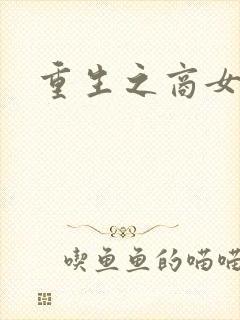 重生之商女
喫鱼鱼的喵喵